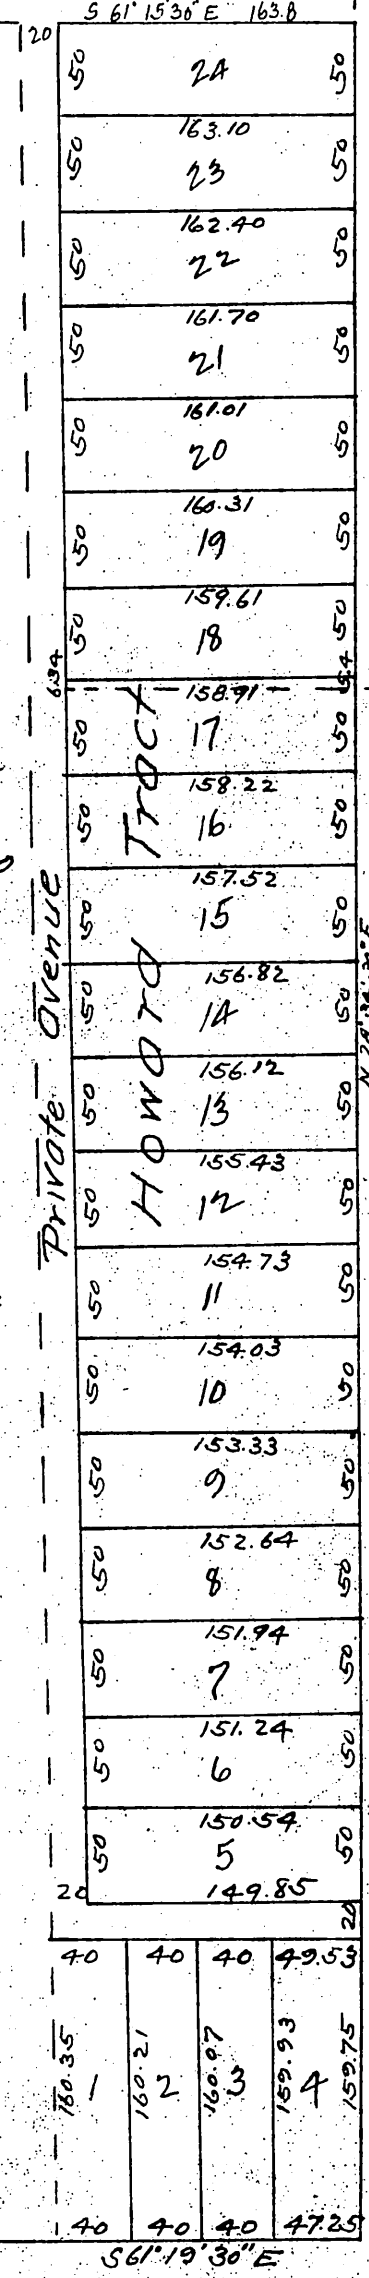 S 61° 15' 30" E 163.8
20
50 24 50
163.10
50 23 50
162.40
50 22 50
161.70
50 21 50
161.01
50 20 50
160.31
50 19 50
159.61
50 18 50
6.34 5.4
158.91
50 17 50
158.22
50 16 50
157.52
50 15 50
156.82
50 14 50
156.12
50 13 50
155.43
50 12 50
154.73
50 11 50
154.03
50 10 50
153.33
50 9 50
152.64
50 8 50
151.94
50 7 50
151.24
50 6 50
150.54
50 5 50
20 149.85
20
Private Avenue
Howard Tract
40 40 40 49.53
160.35 1 160.21 2 160.07 3 159.93 4 159.75
40 40 40 47.25
S 61° 19' 30" E